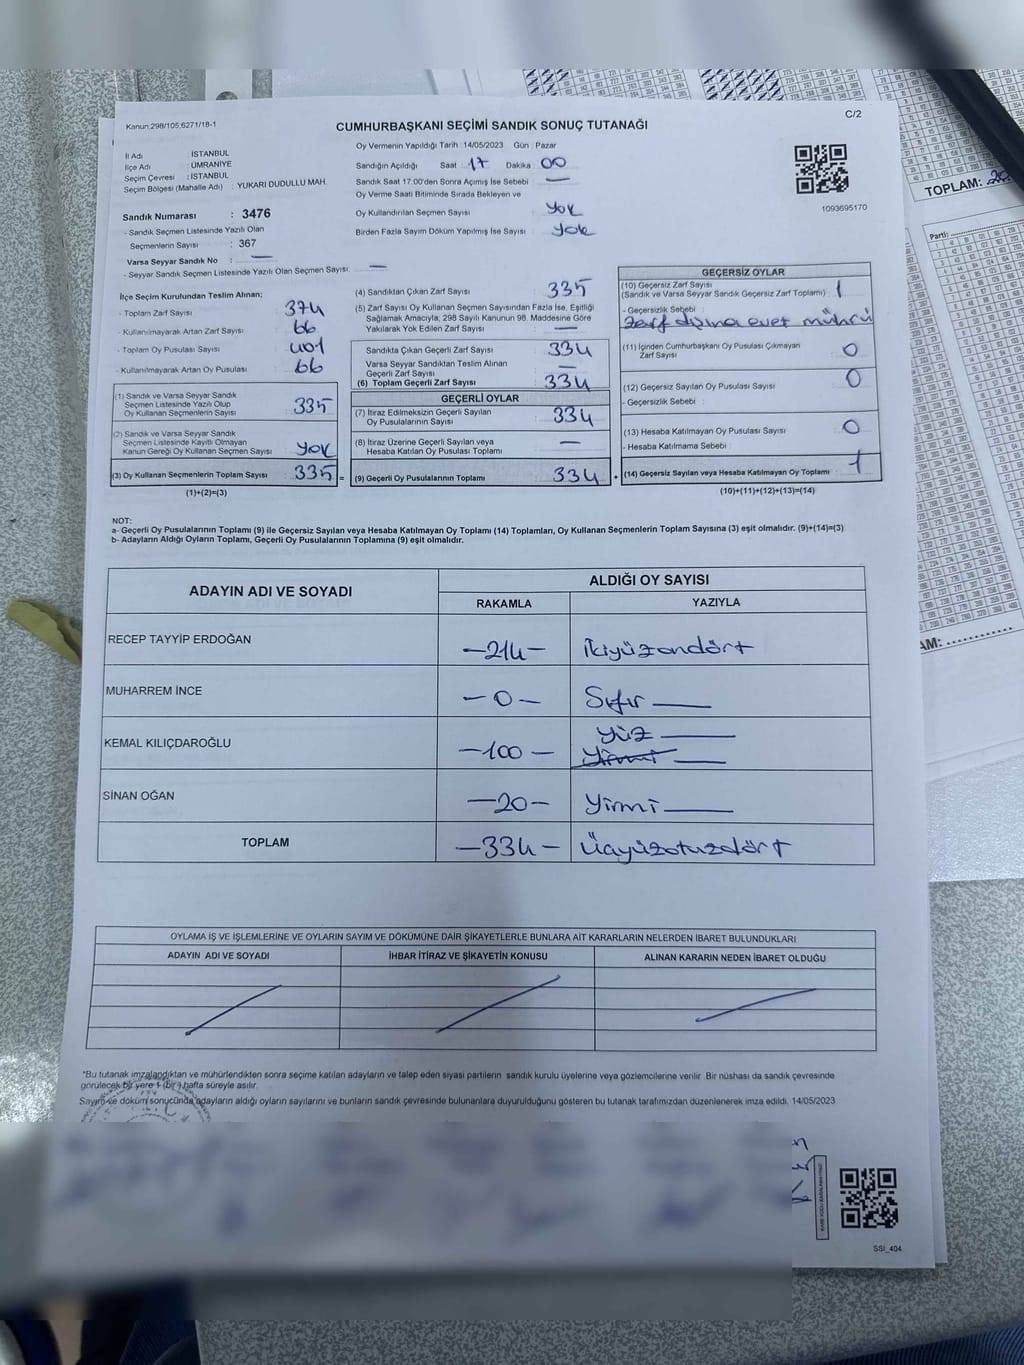 C/2
Kanun:298/105;6271/18-1
CUMHURBAŞKANI SEÇİMİ SANDIK SONUÇ TUTANAĞI
İl Adı : İSTANBUL
İlçe Adı : ÜMRANİYE
Seçim Çevresi : İSTANBUL
Seçim Bölgesi (Mahalle Adı) : YUKARI DUDULLU MAH.
Sandık Numarası : 3476
- Sandık Seçmen Listesinde Yazılı Olan
Seçmenlerin Sayısı : 367
Varsa Seyyar Sandık No : —
- Seyyar Sandık Seçmen Listesinde Yazılı Olan Seçmen Sayısı: —
Oy Vermenin Yapıldığı Tarih : 14/05/2023 Gün : Pazar
Sandığın Açıldığı Saat : 17 Dakika : 00
Sandık Saat 17.00'den Sonra Açımış İse Sebebi : —
Oy Verme Saati Bitiminde Sırada Bekleyen ve
Oy Kullandırılan Seçmen Sayısı : Yok
Birden Fazla Sayım Döküm Yapılmış İse Sayısı : Yok
1093695170
İlçe Seçim Kurulundan Teslim Alınan;
- Toplam Zarf Sayısı : 374
- Kullanılmayarak Artan Zarf Sayısı : 66
- Toplam Oy Pusulası Sayısı : 401
- Kullanılmayarak Artan Oy Pusulası : 66
(1) Sandık ve Varsa Seyyar Sandık
Seçmen Listesinde Yazılı Olup
Oy Kullanan Seçmenlerin Sayısı : 335
(2) Sandık ve Varsa Seyyar Sandık
Seçmen Listesinde Kayıtlı Olmayan
Kanun Gereği Oy Kullanan Seçmen Sayısı : Yok
(3) Oy Kullanan Seçmenlerin Toplam Sayısı : 335 =
(1)+(2)=(3)
(4) Sandıktan Çıkan Zarf Sayısı : 335
(5) Zarf Sayısı Oy Kullanan Seçmen Sayısından Fazla İse, Eşitliği
Sağlamak Amacıyla, 298 Sayılı Kanunun 98. Maddesine Göre
Yakılarak Yok Edilen Zarf Sayısı : —
Sandıkta Çıkan Geçerli Zarf Sayısı : 334
Varsa Seyyar Sandıktan Teslim Alınan
Geçerli Zarf Sayısı : —
(6) Toplam Geçerli Zarf Sayısı : 334
GEÇERLİ OYLAR
(7) İtiraz Edilmeksizin Geçerli Sayılan
Oy Pusulalarının Sayısı : 334
(8) İtiraz Üzerine Geçerli Sayılan veya
Hesaba Katılan Oy Pusulası Toplamı : —
(9) Geçerli Oy Pusulalarının Toplamı : 334 +
GEÇERSİZ OYLAR
(10) Geçersiz Zarf Sayısı
(Sandık ve Varsa Seyyar Sandık Geçersiz Zarf Toplamı) : 1
- Geçersizlik Sebebi :
Zarf dışına evet mührü
(11) İçinden Cumhurbaşkanı Oy Pusulası Çıkmayan
Zarf Sayısı : 0
(12) Geçersiz Sayılan Oy Pusulası Sayısı : 0
- Geçersizlik Sebebi :
(13) Hesaba Katılmayan Oy Pusulası Sayısı : 0
- Hesaba Katılmama Sebebi :
(14) Geçersiz Sayılan veya Hesaba Katılmayan Oy Toplamı : 1
(10)+(11)+(12)+(13)=(14)
NOT:
a- Geçerli Oy Pusulalarının Toplamı (9) ile Geçersiz Sayılan veya Hesaba Katılmayan Oy Toplamı (14) Toplamları, Oy Kullanan Seçmenlerin Toplam Sayısına (3) eşit olmalıdır. (9)+(14)=(3)
b- Adayların Aldığı Oyların Toplamı, Geçerli Oy Pusulalarının Toplamına (9) eşit olmalıdır.
ADAYIN ADI VE SOYADI
ALDIĞI OY SAYISI
RAKAMLA YAZIYLA
RECEP TAYYİP ERDOĞAN —214— ikiyüzondört
MUHARREM İNCE —0— Sıfır —
KEMAL KILIÇDAROĞLU —100— Yüz —
Yirmi —
SİNAN OĞAN —20— Yirmi —
TOPLAM —334— Üçyüzotuzdört
OYLAMA İŞ VE İŞLEMLERİNE VE OYLARIN SAYIM VE DÖKÜMÜNE DAİR ŞİKAYETLERLE BUNLARA AİT KARARLARIN NELERDEN İBARET BULUNDUKLARI
ADAYIN ADI VE SOYADI İHBAR İTİRAZ VE ŞİKAYETİN KONUSU ALINAN KARARIN NEDEN İBARET OLDUĞU
*Bu tutanak imzalandıktan ve mühürlendikten sonra seçime katılan adayların ve talep eden siyasi partilerin sandık kurulu üyelerine veya gözlemcilerine verilir. Bir nüshası da sandık çevresinde
görülecek bir yere 1 (bir) hafta süreyle asılır.
Sayım ve döküm sonucunda adayların aldığı oyların sayılarını ve bunların sandık çevresinde bulunanlara duyurulduğunu gösteren bu tutanak tarafımızdan düzenlenerek imza edildi. 14/05/2023
SSİ_404
TOPLAM:
Parti: